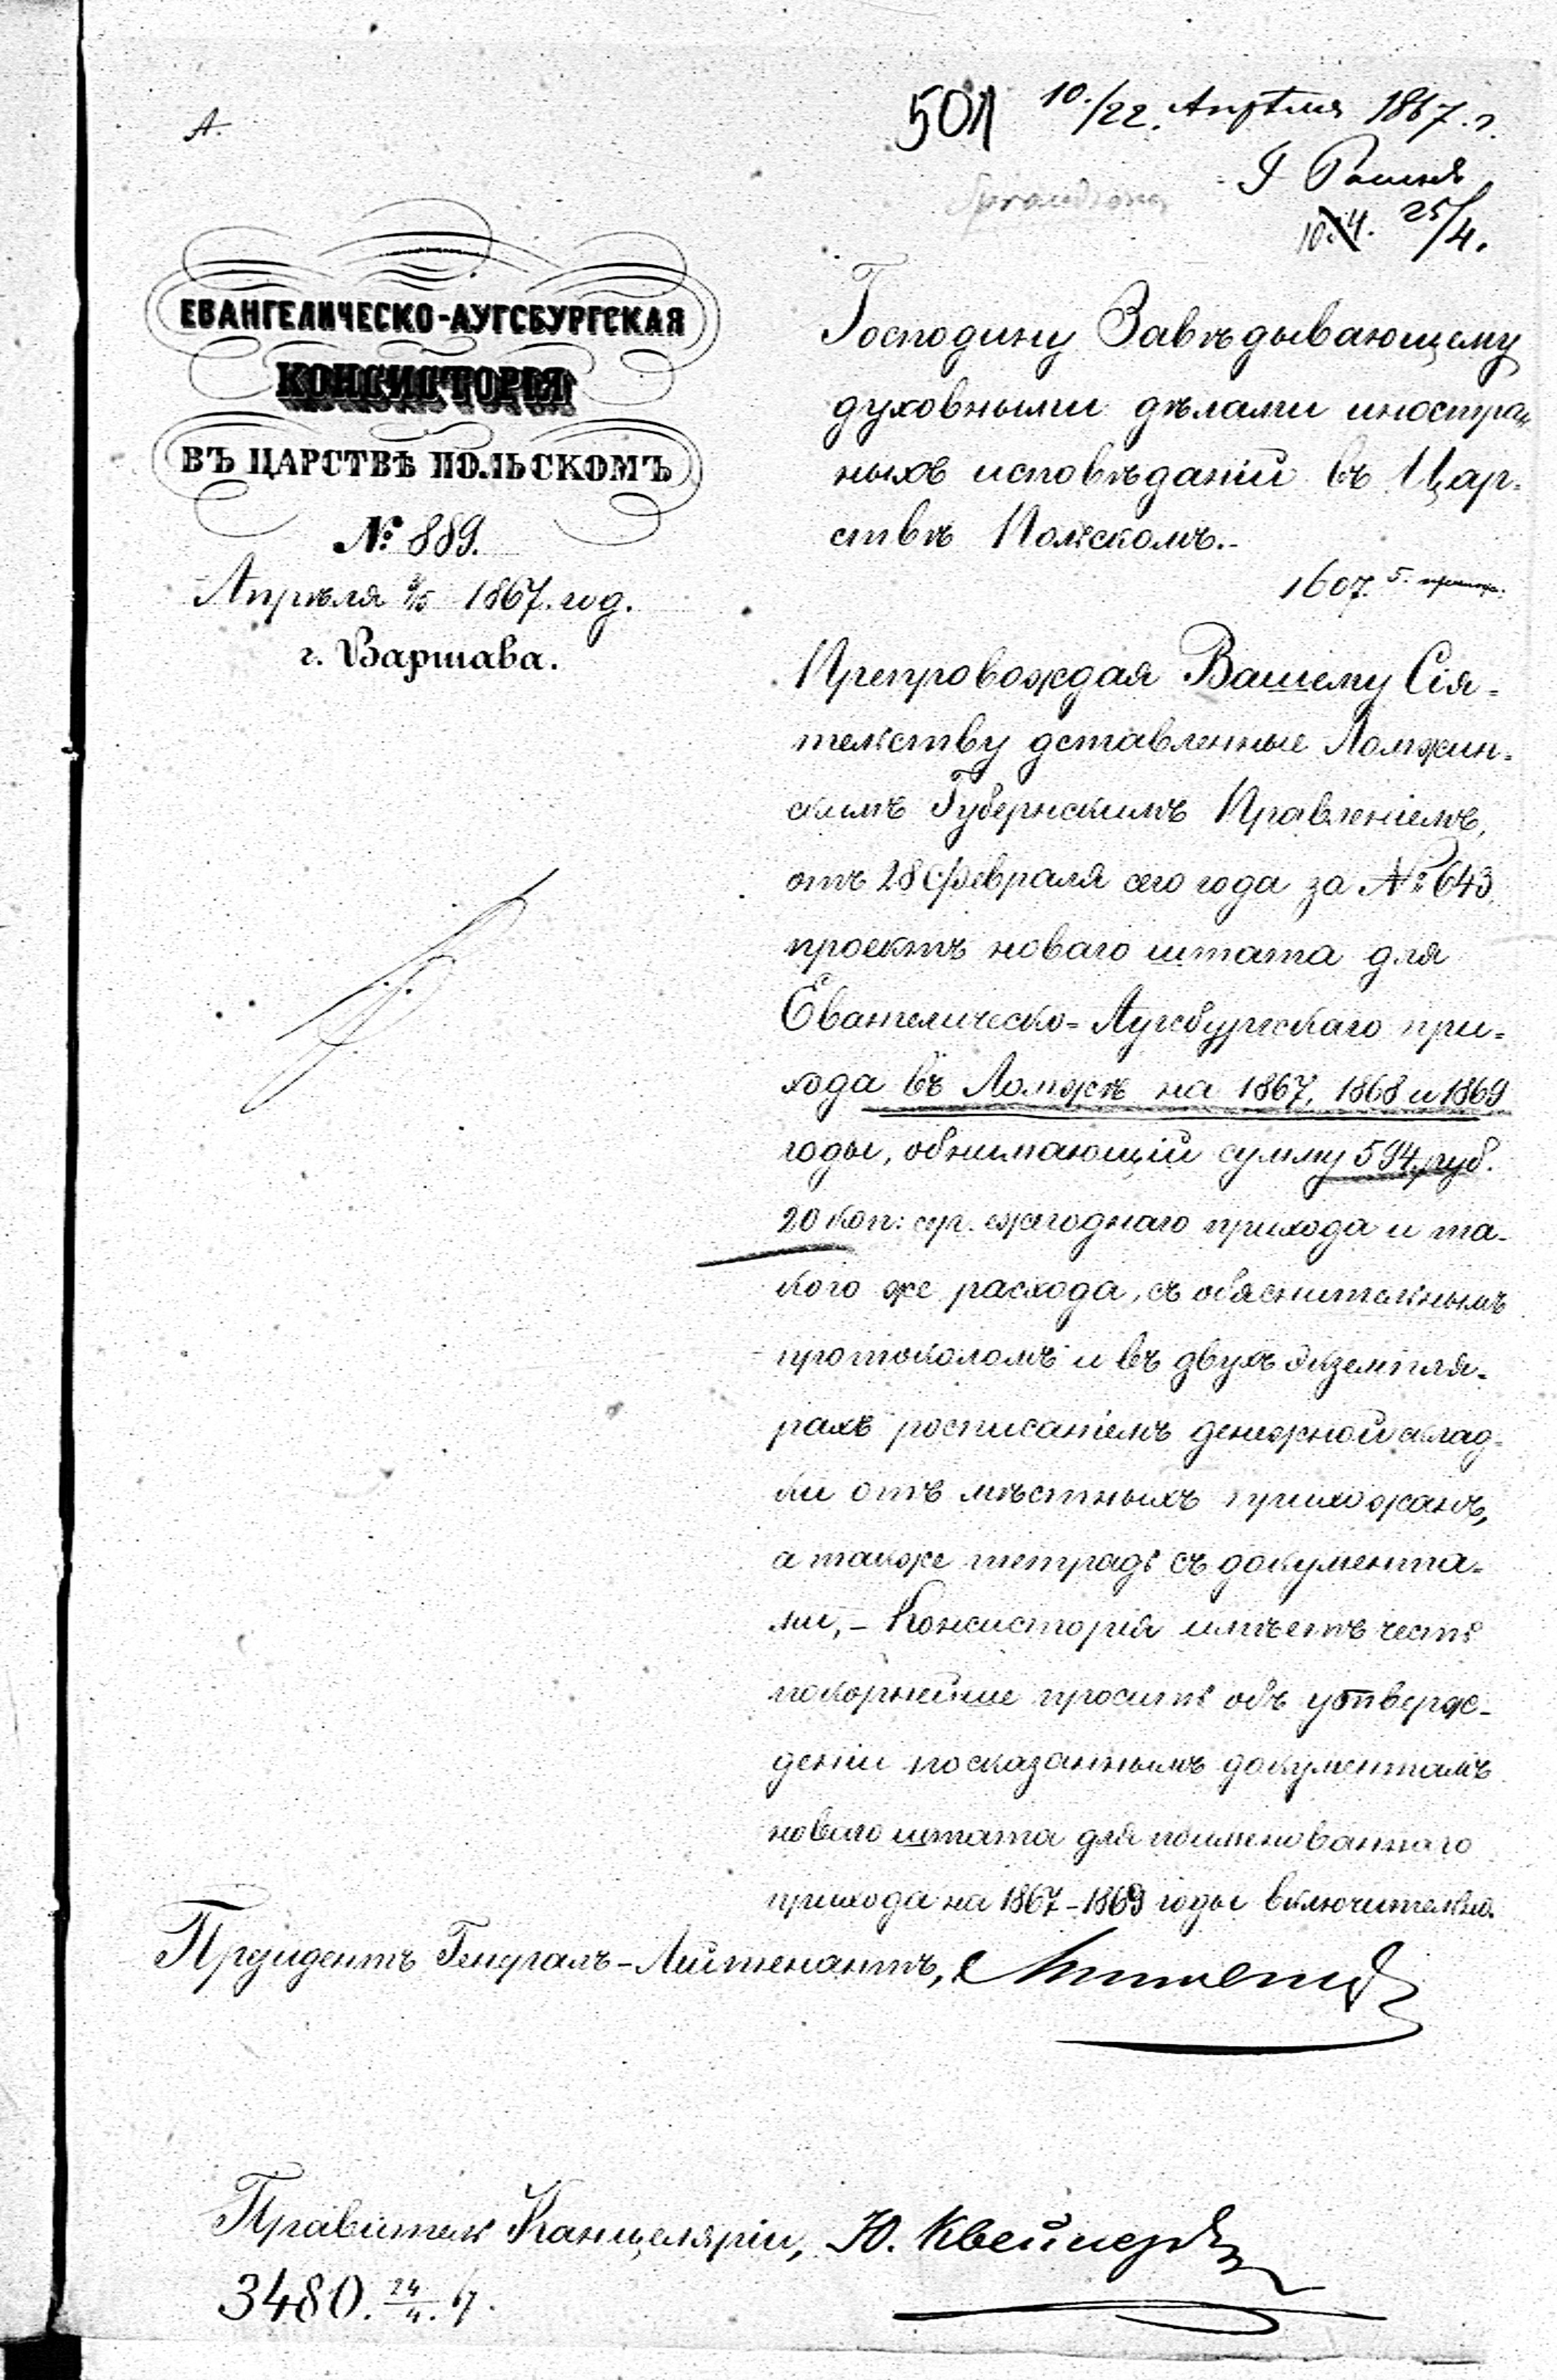 А.
501 10./22. Апрѣля 1867. г.
25/4.
ЕВАНГЕЛИЧЕСКО-АУГСБУРГСКАЯ
КОНСИСТОРІЯ
ВЪ ЦАРСТВѢ ПОЛЬСКОМЪ
№ 889.
Апрѣля 3/15 1867. год.
г. Варшава.
Господину Завѣдывающему
духовными дѣлами иностран-
ныхъ исповѣданій въ Цар-
ствѣ Польскомъ.-
1607.
Препровождая Вашему Сія-
тельству дставленные Ломжин-
скимъ Губернскимъ Правленіемъ,
отъ 28 февраля сего года за № 643
проектъ новаго штата для
Евангелическо-Аугсбургскаго при-
хода въ Ломжѣ на 1867, 1868 и 1869
годы, обнимающій сумму 594 руб.
20 коп: сер. ежегоднаго прихода и та-
кого же расхода, съ обяснительнымъ
протоколомъ и въ двухъ экземпля-
рахъ росписаніемъ денежной склад-
ки отъ мѣстныхъ прихожанъ,
а также тетрадь съ документа-
ми,- Консисторія имѣетъ честь
покорнейше просить объ утверж-
деніи по сказаннымъ документамъ
новаго штата для поименованнаго
прихода на 1867-1869 годы включительно.
Президентъ Генералъ-Лейтенантъ,
Правитель Канцеляріи, Ю. Квейцеръ
3480. 24/4. 67.